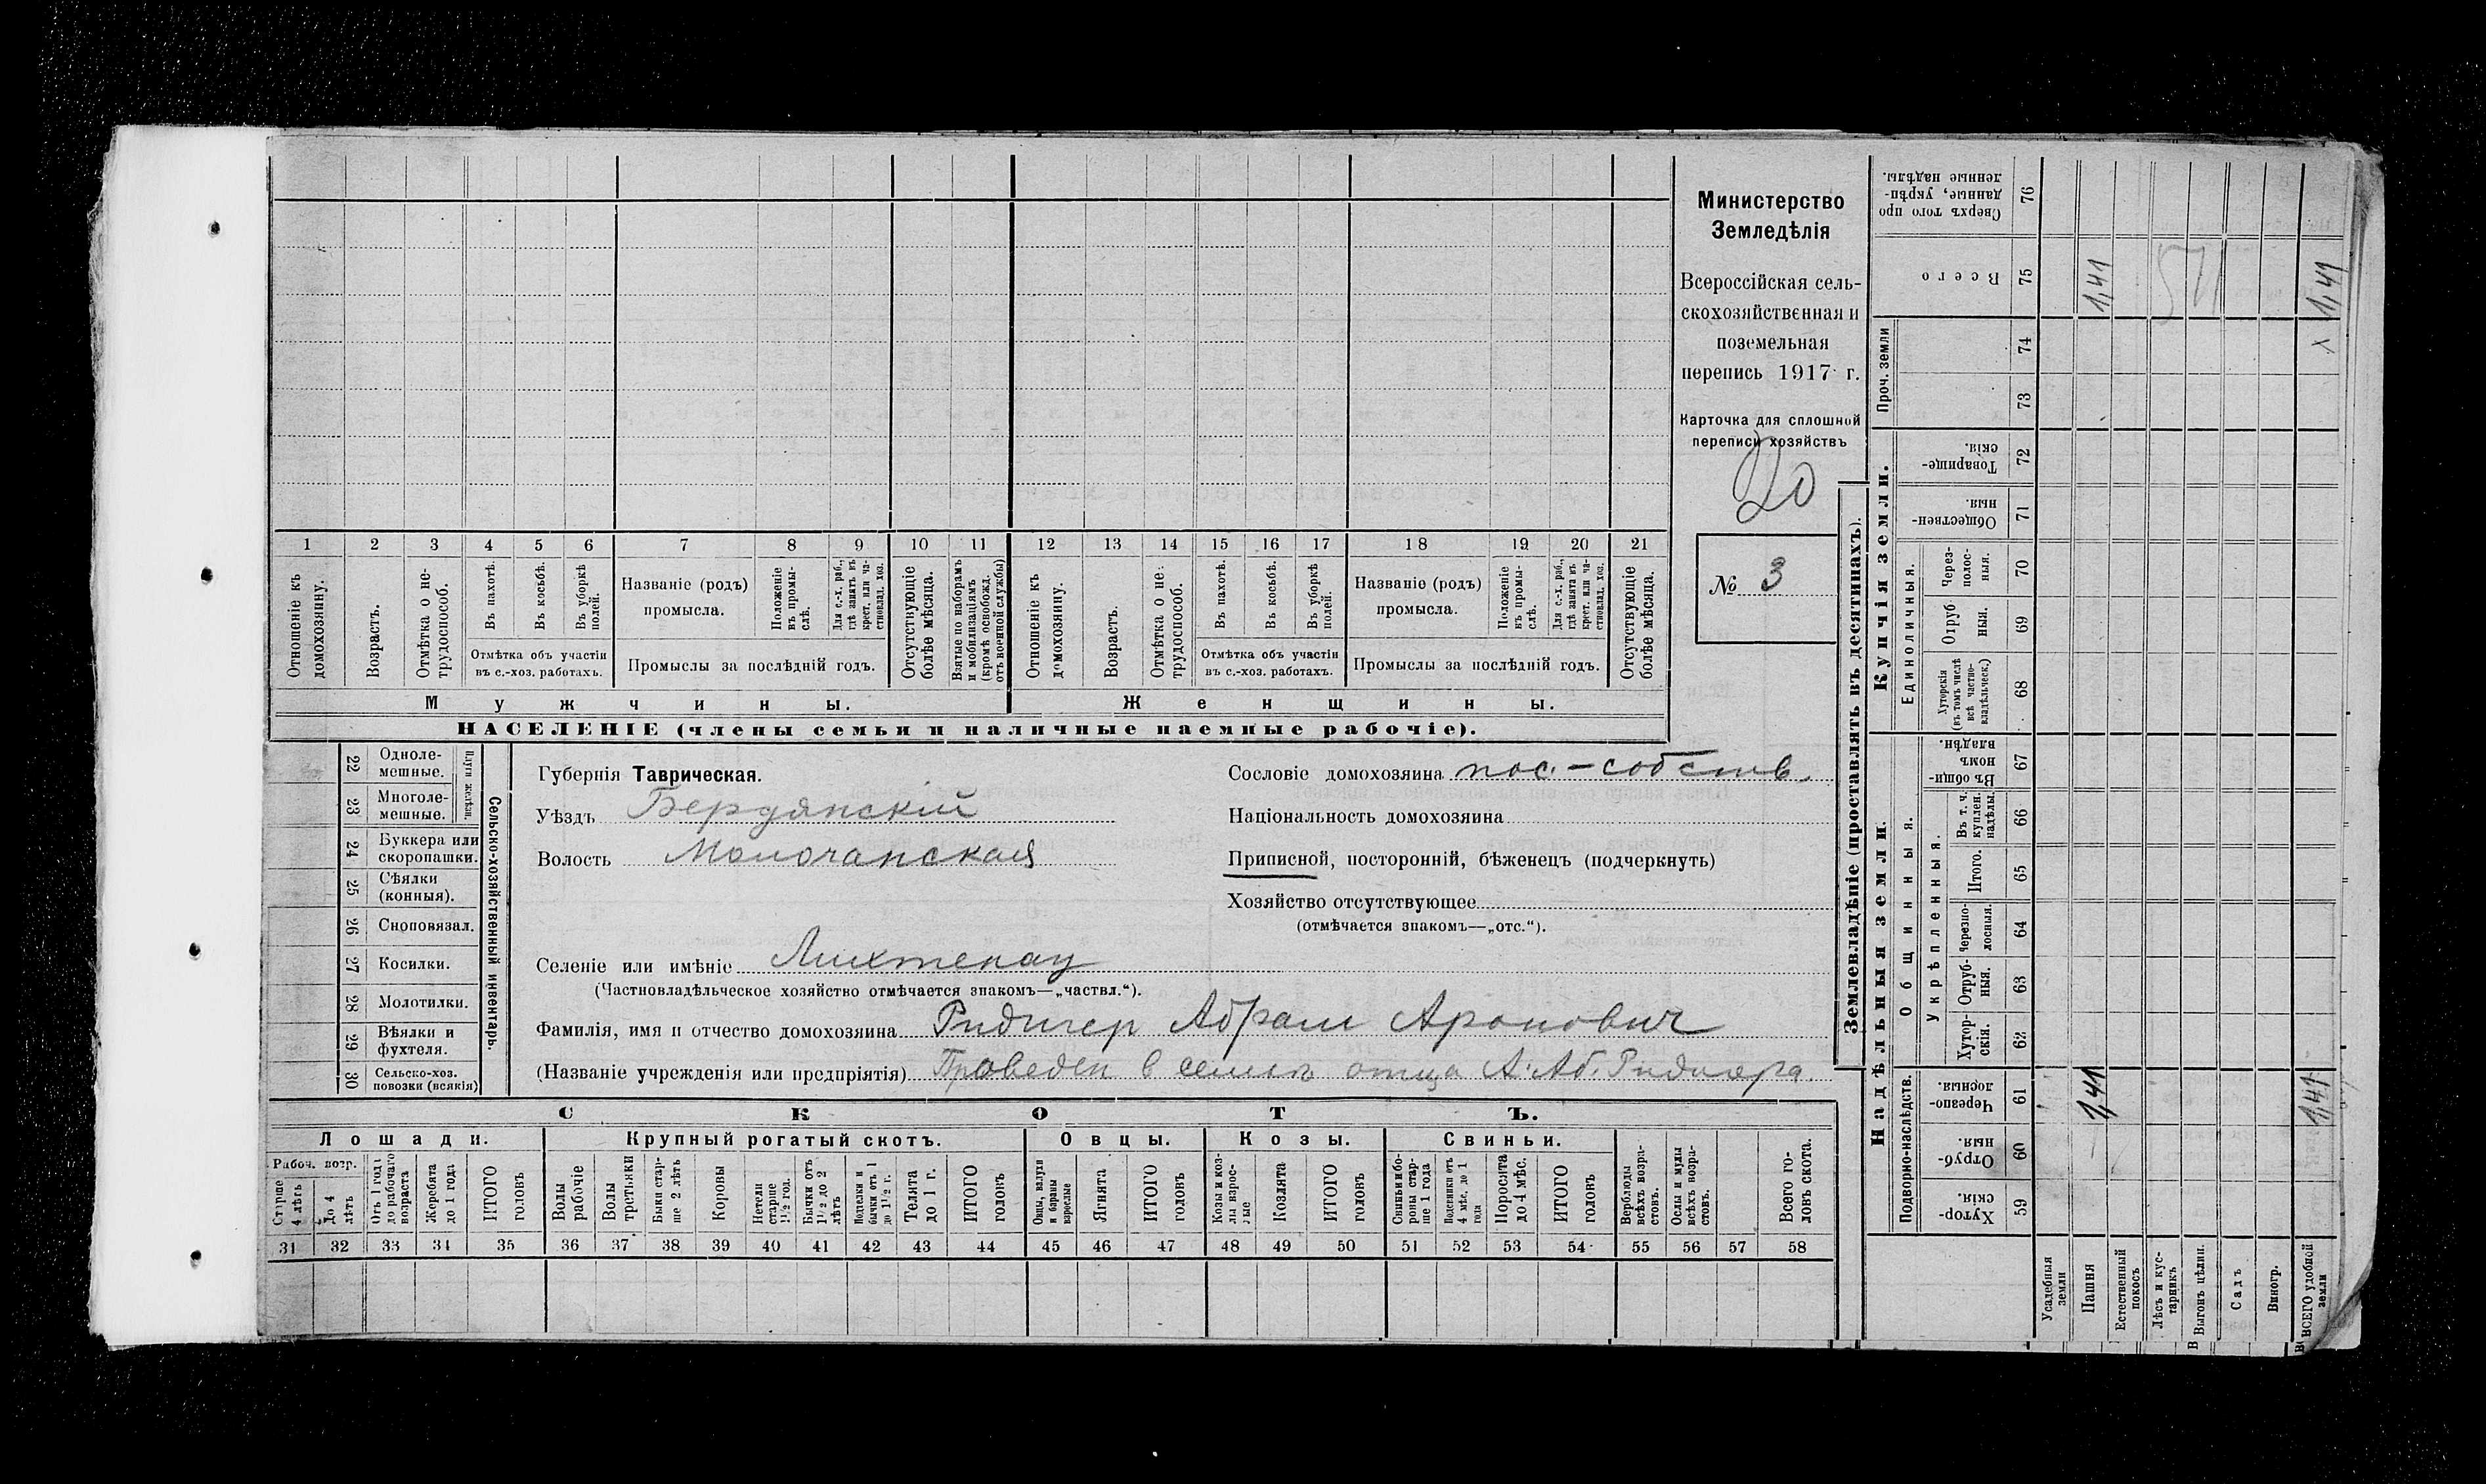 Министерство
Земледѣлія
Всероссійская сель-
скохозяйственная и
поземельная
перепись 1917 г.
Карточка для сплошной
переписи хозяйствъ
20
№ 3
1 2 3 4 5 6 7 8 9 10 11 12 13 14 15 16 17 18 19 20 21
Отношеніе къ домохозяину.
Возрастъ.
Отмѣтка о не-трудоспособ.
Въ пахотѣ.
Въ косьбѣ.
Въ уборкѣ полей.
Отмѣтка объ участіи
въ с.-хоз. работахъ.
Названіе (родъ)
промысла.
Положеніе въ промы-слѣ.
Для с.-х. раб., гдѣ занятъ въ крест. или ча-стновлад. хоз.
Промыслы за послѣдній годъ.
Отсутствующіе болѣе мѣсяца.
Взятые по наборамъ и мобилизаціямъ (кромѣ освобожд. отъ военной службы)
Отношеніе къ домохозяину.
Возрастъ.
Отмѣтка о не-трудоспособ.
Въ пахотѣ.
Въ косьбѣ.
Въ уборкѣ полей.
Отмѣтка объ участіи
въ с.-хоз. работахъ.
Названіе (родъ)
промысла.
Положеніе въ промы-слѣ.
Для с.-х. раб., гдѣ занята въ крест. или ча-стновлад. хоз.
Промыслы за послѣдній годъ.
Отсутствующіе болѣе мѣсяца.
Мужчины.
Женщины.
НАСЕЛЕНІЕ (члены семьи и наличные наемные рабочіе).
22 Одноле-мешные.
23 Многоле-мешные.
Плуги желѣзн.
24 Буккера или скоропашки.
25 Сѣялки (конныя).
26 Сноповязал.
27 Косилки.
28 Молотилки.
29 Вѣялки и фухтеля.
30 Сельско-хоз. повозки (всякія)
Сельско-хозяйственный инвентарь.
Губернія Таврическая.
Уѣздъ Бердянскій
Волость Молочанская
Сословіе домохозяина пос.-собств.
Національность домохозяина
Приписной, посторонній, бѣженецъ (подчеркнуть)
Хозяйство отсутствующее
(отмѣчается знакомъ—„отс.“).
Селеніе или имѣніе Лихтенау
(Частновладѣльческое хозяйство отмѣчается знакомъ—„частвл.“).
Фамилія, имя и отчество домохозяина Ридигер Абрам Аронович
(Названіе учрежденія или предпріятія) Проведен в семью отца А. Аб. Ридигера.
СКОТЪ.
Лошади.
Крупный рогатый скотъ.
Овцы.
Козы.
Свиньи.
Рабоч. возр.
Старше 4 лѣтъ
До 4 лѣтъ
Отъ 1 года до рабочаго возраста
Жеребята до 1 года
ИТОГО головъ
Волы рабочіе
Волы третьяки
Быки стар-ше 2 лѣтъ
Коровы
Нетели старше 1½ год.
Бычки отъ 1½ до 2 лѣтъ
Подтелки и бычки отъ 1 до 1½ г.
Телята до 1 г.
ИТОГО головъ
Овцы, валухи и бараны взрослые
Ягнята
ИТОГО головъ
Козы и коз-лы взрос-лые
Козлята
ИТОГО головъ
Свиньи и бо-ровы стар-ше 1 года
Подсвинки отъ 4 мѣс. до 1 года
Поросята до 4 мѣс.
ИТОГО головъ
Верблюды всѣхъ возра-стовъ.
Ослы и мулы всѣхъ возра-стовъ.
Всего го-ловъ скота.
31 32 33 34 35 36 37 38 39 40 41 42 43 44 45 46 47 48 49 50 51 52 53 54 55 56 57 58
Землевладѣніе (проставлять въ десятинахъ).
Надѣльныя земли.
Купчія земли.
Проч. земли
Подворно-наслѣдств.
Общинныя.
Укрѣпленныя.
Единоличныя.
Сверхъ того про-данные, укрѣп-ленные надѣлы. 76
Всего 75 1,41 1,41
74
73
Товарище-скія. 72
Обществен-ныя. 71
Через-полос-ныя. 70
Отруб-ныя. 69
Хуторскія (въ томъ числѣ всѣ частно-владѣльческ.) 68
Въ общин-номъ владѣн. 67
Въ т. ч. куплен. надѣлы. 66
Итого. 65
Черезпо-лосныя. 64
Отруб-ныя. 63
Хутор-скія. 62
Черезпо-лосныя. 61 1,41 1,41
Отруб-ныя. 60
Хутор-скія. 59
Усадебныя земли
Пашня
Естественный покосъ
Лѣсъ и кус-тарникъ
Выгонъ цѣлин.
Садъ
Виногр.
ВСЕГО удобной земли